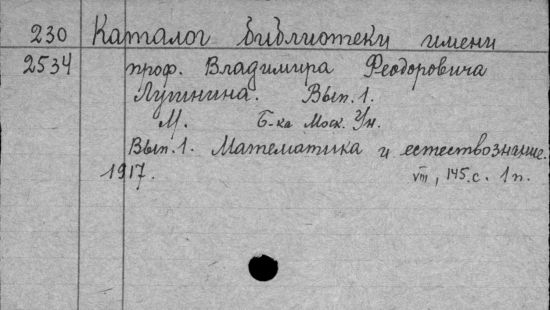 230 Каталог библиотеки имени
2534 проф. Владимира Феодоровича
Лугинина. Вып. 1.
М. Б-ка Моск. Ун.
Вып. 1. Математика и естествознание.
1917. VIII, 145 с. 1 п.